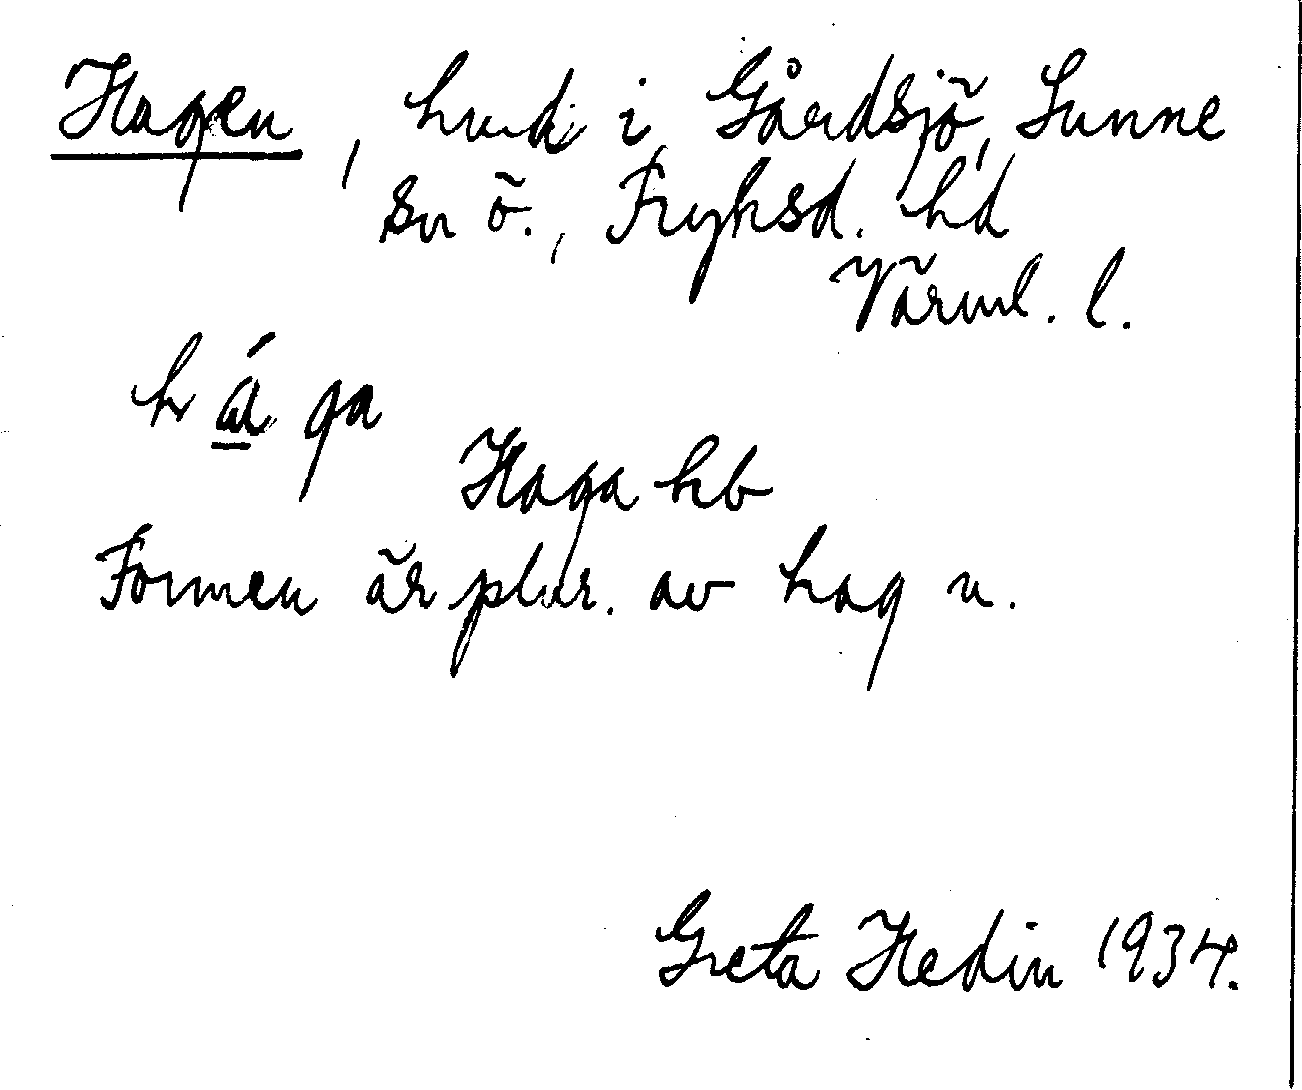 Hagen, hmd i Gårdsjö, Sunne
sn ö., Fryksd. hd
Värml. l.
h á ga
Haga hb
Formen är plur. av hag n.
Greta Hedin 1934.